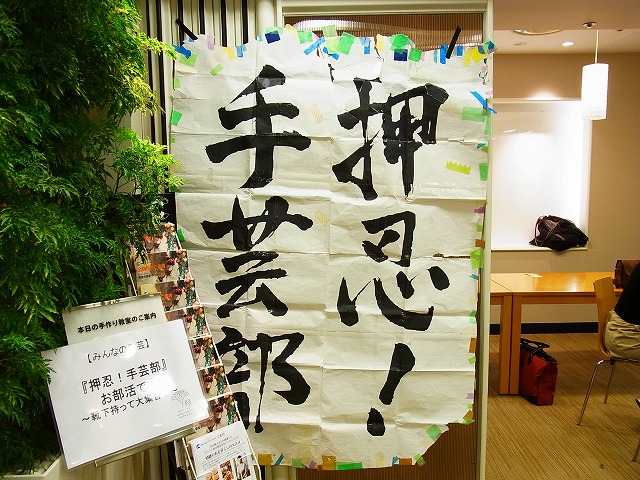 押忍！
手芸部
本日の手作り教室のご案内
【みんなの 芸】
『押忍！手芸部』
お部活で
〜靴下持って大集合